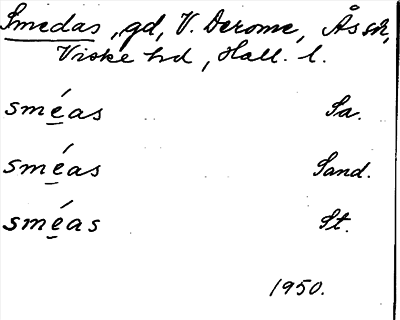 Smedas, gd, V. Derome, Ås sn,
Viske hd, Hall. l.
smé̱as Sa.
smé̱as Sand.
smé̱as St.
1950.